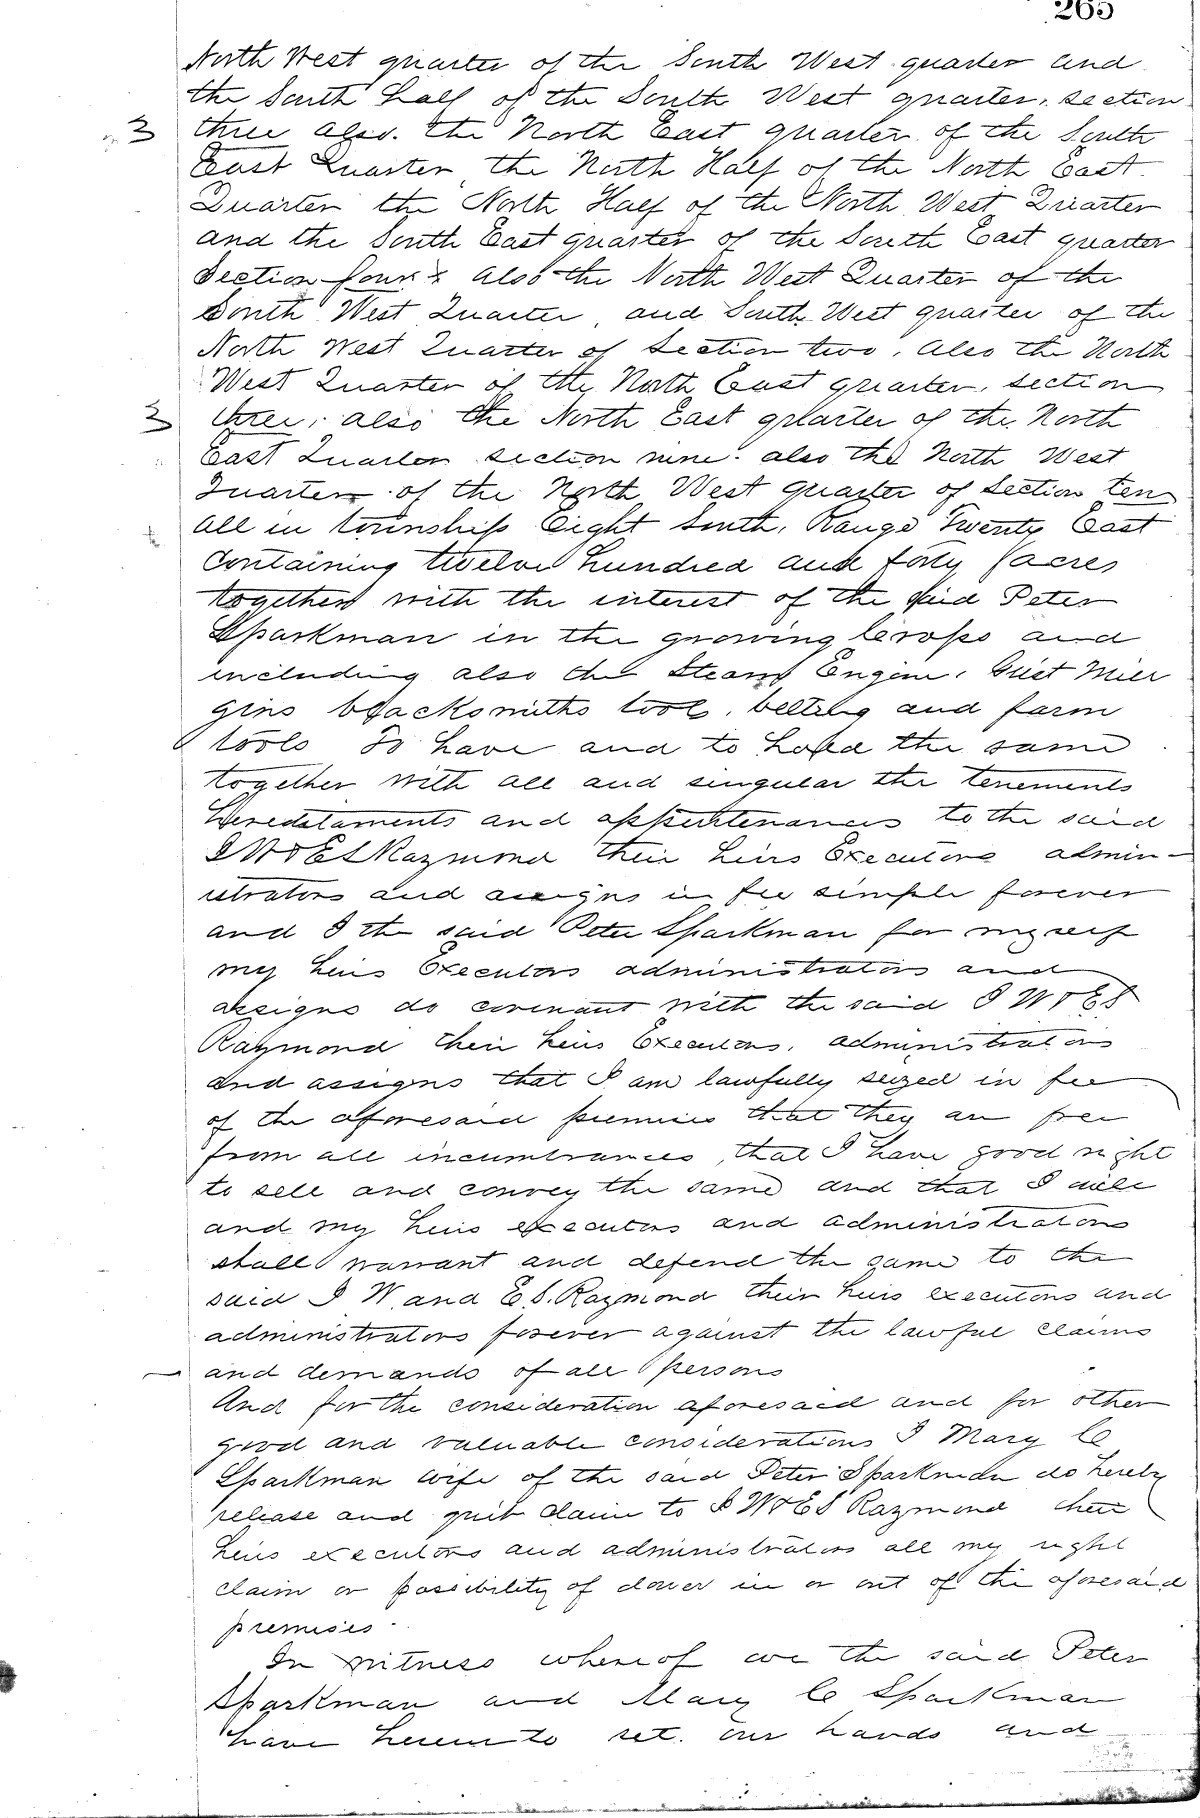 265
North West quarter of the South West quarter and
the South half of the South West quarter, section
3 three also. the North East quarter of the South
East Quarter, the North Half of the North East
Quarter the North Half of the North West Quarter
and the South East quarter of the South East quarter
Section four & also the North West Quarter of the
South West Quarter, and South West quarter of the
North West Quarter of Section two. Also the North
West Quarter of the North East quarter, section
3 three; also the North East quarter of the North
East Quarter section nine. also the North West
Quarter of the North West quarter of Section ten
all in township Eight South, Range Twenty East
containing twelve hundred and forty acres
together with the interest of the said Peter
Sparkman in the growing Crops and
including also the Steam Engine, Grist Mill
gins blacksmiths tools, belting and farm
tools To have and to hold the same
together with all and singular the tenements
hereditaments and appurtenances to the said
I W & E S Raymond their heirs Executors admin-
istrators and assigns in fee simple forever
and I the said Peter Sparkman for myself
my heirs Executors administrators and
assigns do covenant with the said I W & E S
Raymond their heirs Executors, administrators
and assigns that I am lawfully seized in fee
of the aforesaid premises that they are free
from all incumbrances, that I have good right
to sell and convey the same and that I will
and my heirs executors and administrators
shall warrant and defend the same to the
said I W. and E. S. Raymond their heirs executors and
administrators forever against the lawful claims
and demands of all persons
And for the consideration aforesaid and for other
good and valuable considerations I Mary C
Sparkman wife of the said Peter Sparkman do hereby
release and quit claim to I W & E S Raymond their
heirs executors and administrators all my right
claim or possibility of dower in or out of the aforesaid
premises.
In witness whereof we the said Peter
Sparkman and Mary C Sparkman
have hereunto set our hands and